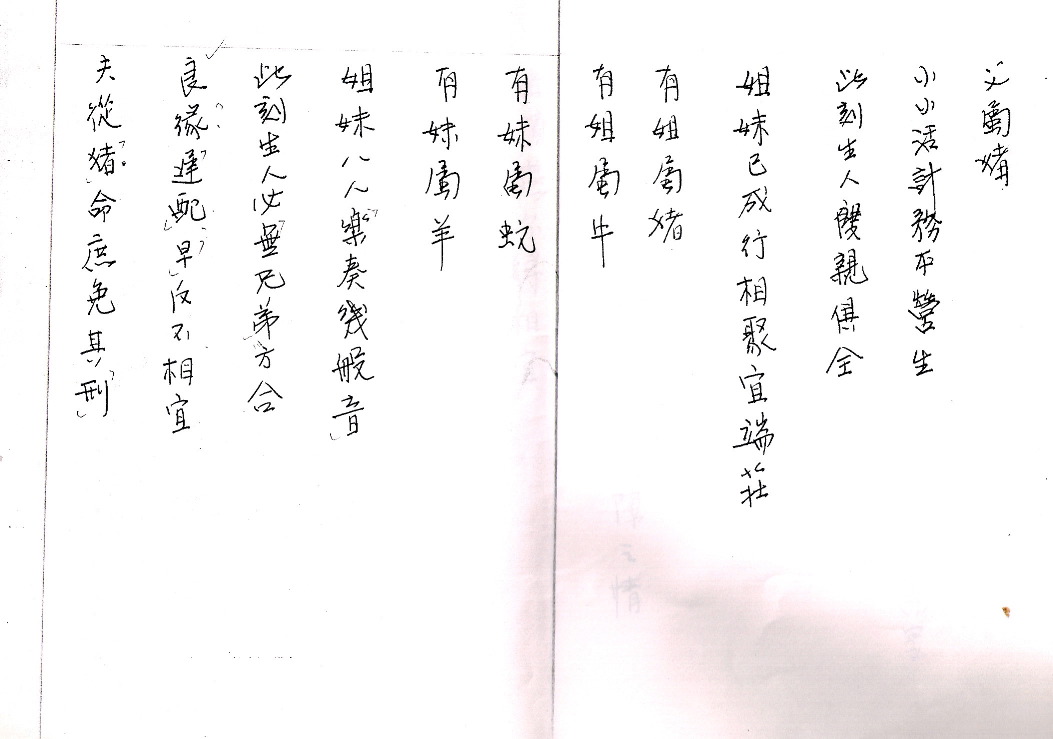 父屬猪
小小活計務本營生
此刻生人雙親俱全
姐妹已成行相聚宜端莊
有姐屬猪
有姐屬牛
有妹屬蛇
有妹屬羊
姐妹八人樂奏幾般音
此刻生人必無兄弟方合
良緣遲配早反不相宜
夫從猪命庶免其刑